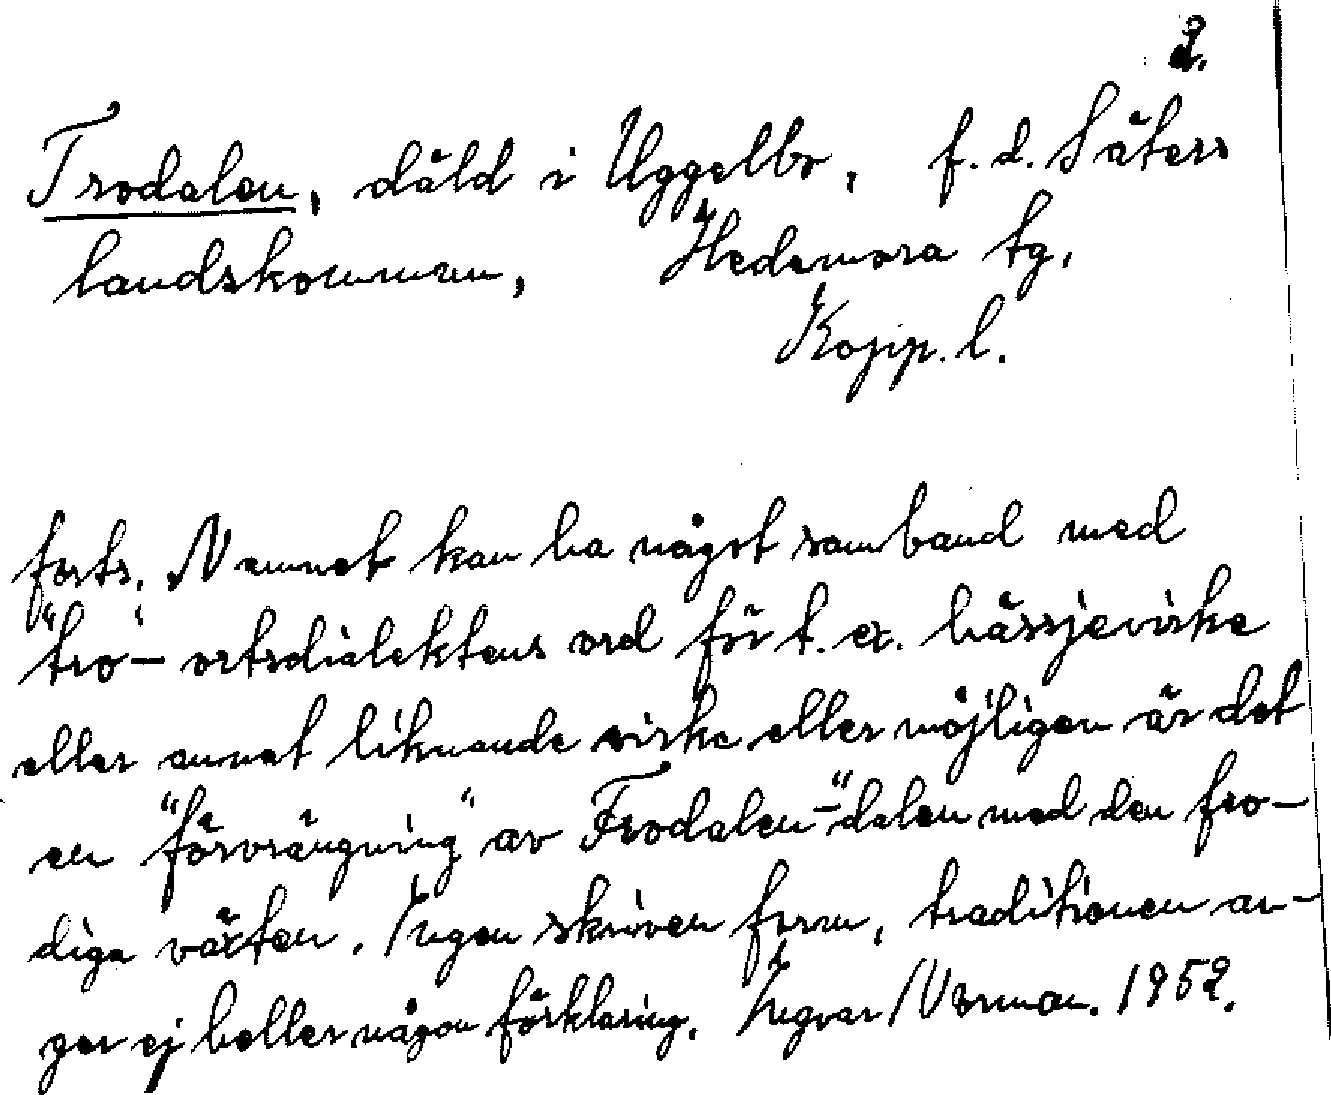 2.
Trodalen, däld i Uggelbo, f.d. Säters
landskommun, Hedemora tg,
Kopp. l.
forts. Namnet kan ha något samband med
"tro"- ortsdialektens ord för t. ex. hässjevirke
eller annat liknande virke eller möjligen är det
en "förvrängning" av Frodalen-"dalen med den fro-
diga växten. Ingen skriven form, traditionen an-
ger ej heller någon förklaring. Ingvar Norman. 1952.